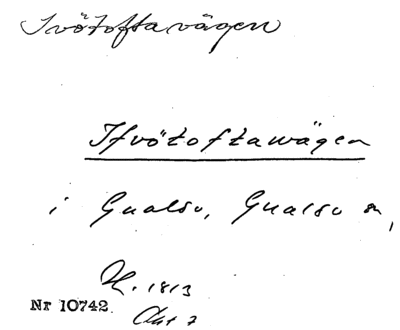 Ivötoftavägen
Ifvötoftawägen
i Gualöv, Gualöv sn,
H. 1813
Nr 10742
Akt 7